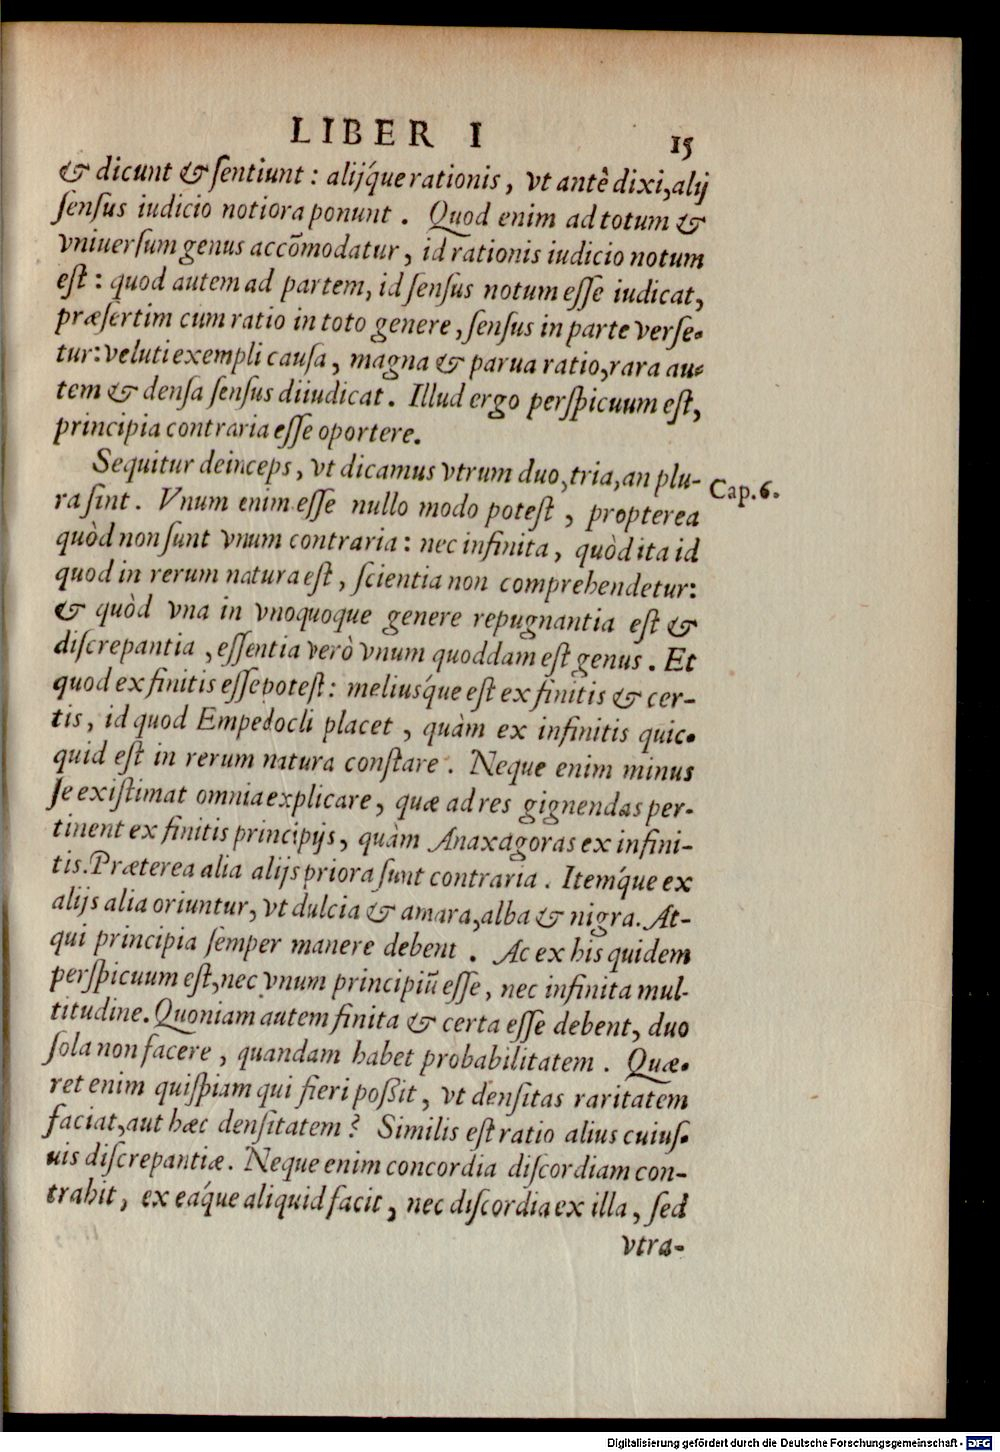 LIBER I
15
& dicunt & ſentiunt : alij́que rationis, vt antè dixi, alij
ſenſus iudicio notiora ponunt . Quod enim ad totum &
vniuerſum genus accōmodatur, id rationis iudicio notum
eſt : quod autem ad partem, id ſenſus notum eſſe iudicat,
præſertim cum ratio in toto genere, ſenſus in parte verſe-
tur: veluti exempli cauſa, magna & parua ratio, rara au-
tem & denſa ſenſus diiudicat. Illud ergo perſpicuum eſt,
principia contraria eſſe oportere.
Sequitur deinceps, vt dicamus vtrum duo, tria, an plu-
Cap. 6.
ra ſint. Vnum enim eſſe nullo modo poteſt , propterea
quòd non ſunt vnum contraria : nec infinita, quòd ita id
quod in rerum natura eſt, ſcientia non comprehendetur:
& quòd vna in vnoquoque genere repugnantia eſt &
diſcrepantia , eſſentia verò vnum quoddam eſt genus. Et
quod ex finitis eſſe poteſt: meliuśque eſt ex finitis & cer-
tis, id quod Empedocli placet , quàm ex infinitis quic-
quid eſt in rerum natura conſtare . Neque enim minus
ſe exiſtimat omnia explicare, quæ ad res gignendas per-
tinent ex finitis principijs, quàm Anaxagoras ex infini-
tis. Præterea alia alijs priora ſunt contraria. Iteḿque ex
alijs alia oriuntur, vt dulcia & amara, alba & nigra. At-
qui principia ſemper manere debent . Ac ex his quidem
perſpicuum eſt, nec vnum principiū eſſe, nec infinita mul-
titudine. Quoniam autem finita & certa eſſe debent, duo
ſola non facere , quandam habet probabilitatem . Quæ-
ret enim quiſpiam qui fieri poßit, vt denſitas raritatem
faciat, aut hæc denſitatem? Similis eſt ratio alius cuiuſ-
uis diſcrepantiæ. Neque enim concordia diſcordiam con-
trahit, ex eáque aliquid facit, nec diſcordia ex illa, ſed
vtra-
Digitalisierung gefördert durch die Deutsche Forschungsgemeinschaft - DFG